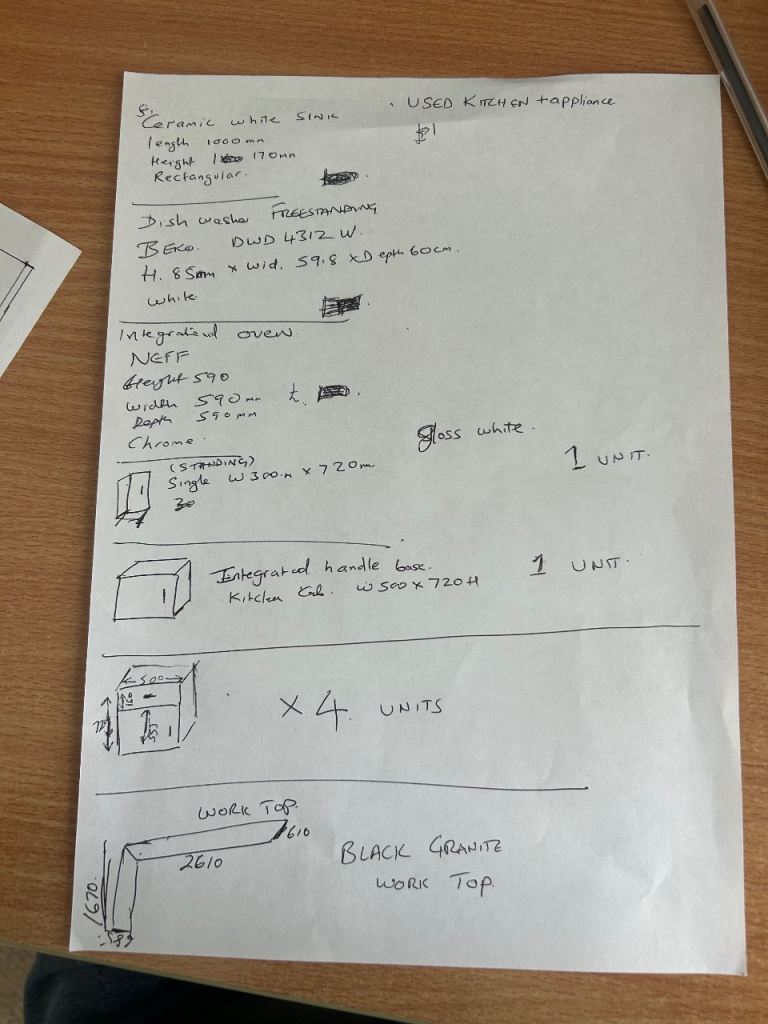 Ceramic white SINK
length 1000mm
Height 170mm
Rectangular.
. USED KITCHEN + appliance
Dish washer FREESTANDING
BEKO. DWD 4312 W.
H. 85mm x wid. 59.8 x Depth 60cm.
white
Integrated oven
NEFF
Height 590
width 590mm
Depth 590mm
Chrome.
gloss white.
(STANDING)
Single W 300m x 720m
1 UNIT.
Integrated handle base.
Kitchen Cab. W 500 x 720 H
1 UNIT.
500
X 4 UNITS
WORK TOP.
610
2610
1670.
589
BLACK GRANITE
WORK TOP.